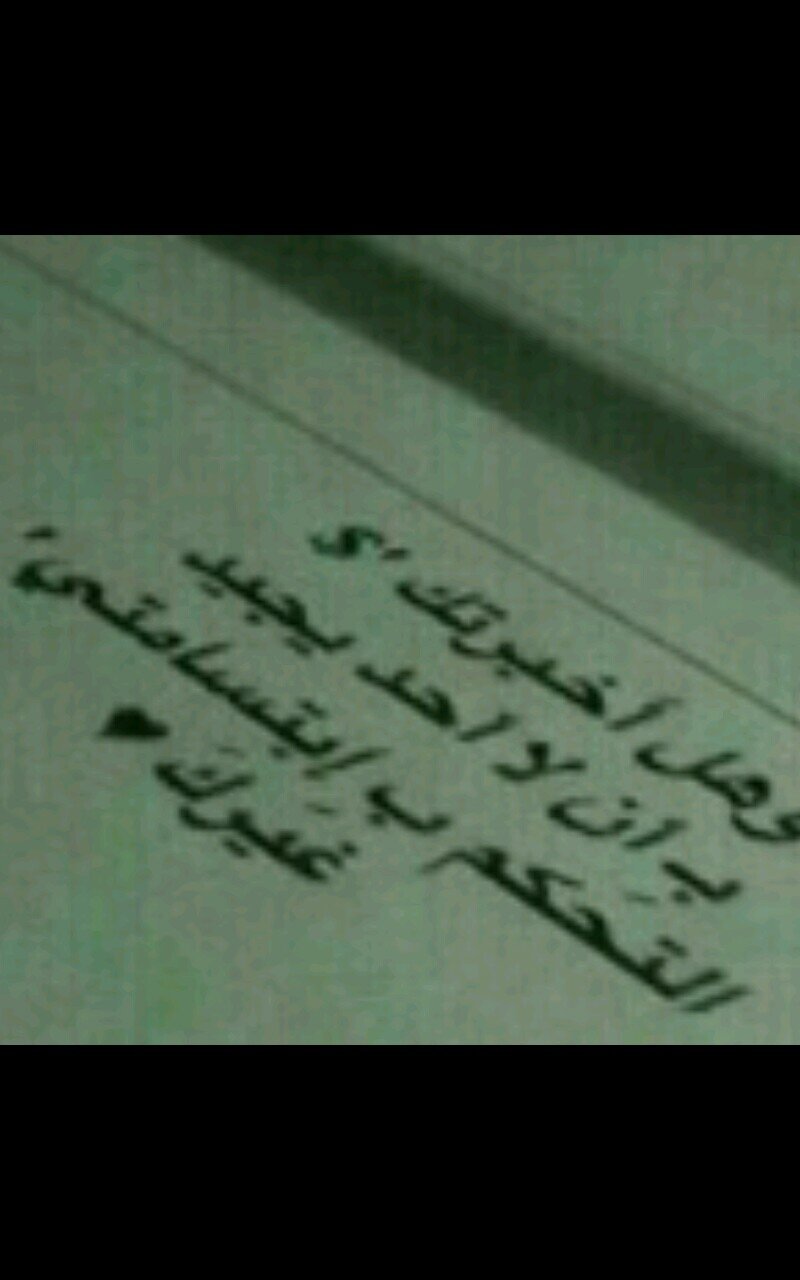 وهل أخبرتك '؟
بِ أن لا أحد يجيد
التَحكم بِ إبتسامتي'
غَيركَ ♥